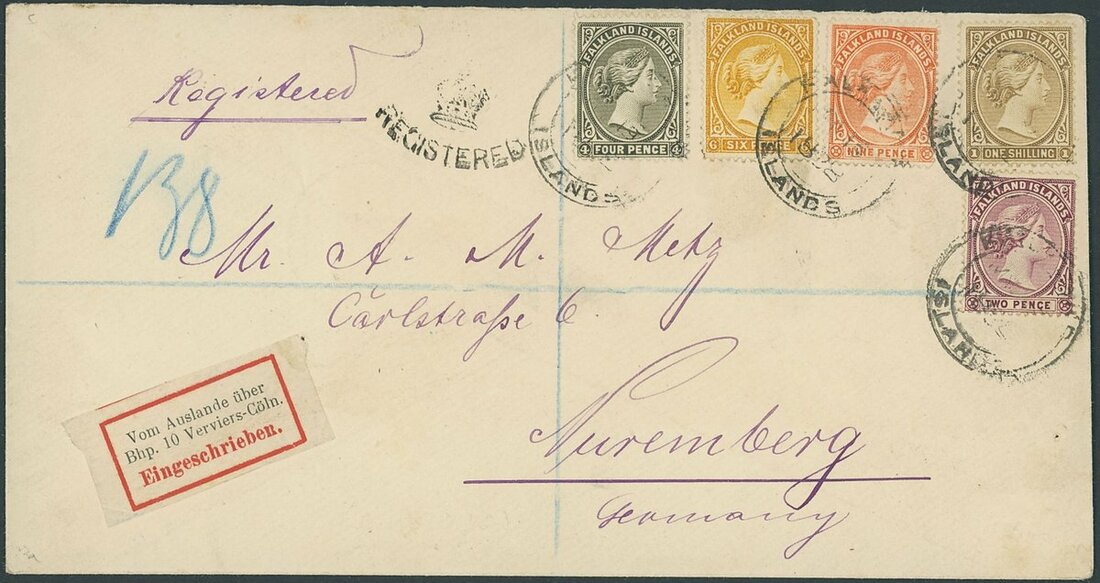 Registered
REGISTERED
138
FALKLAND ISLANDS
4 FOUR PENCE 4
FALKLAND ISLANDS
6 SIX PENCE
FALKLAND ISLANDS
NINE PENCE
FALKLAND ISLANDS
1 ONE SHILLING 1
FALKLAND ISLANDS
TWO PENCE
ISLANDS
ISLANDS
ISLANDS
ISLANDS
Mr. A. M. Metz
Carlstraße 6
Nuremberg
Germany
Vom Auslande über
Bhp. 10 Verviers-Cöln.
Eingeschrieben.